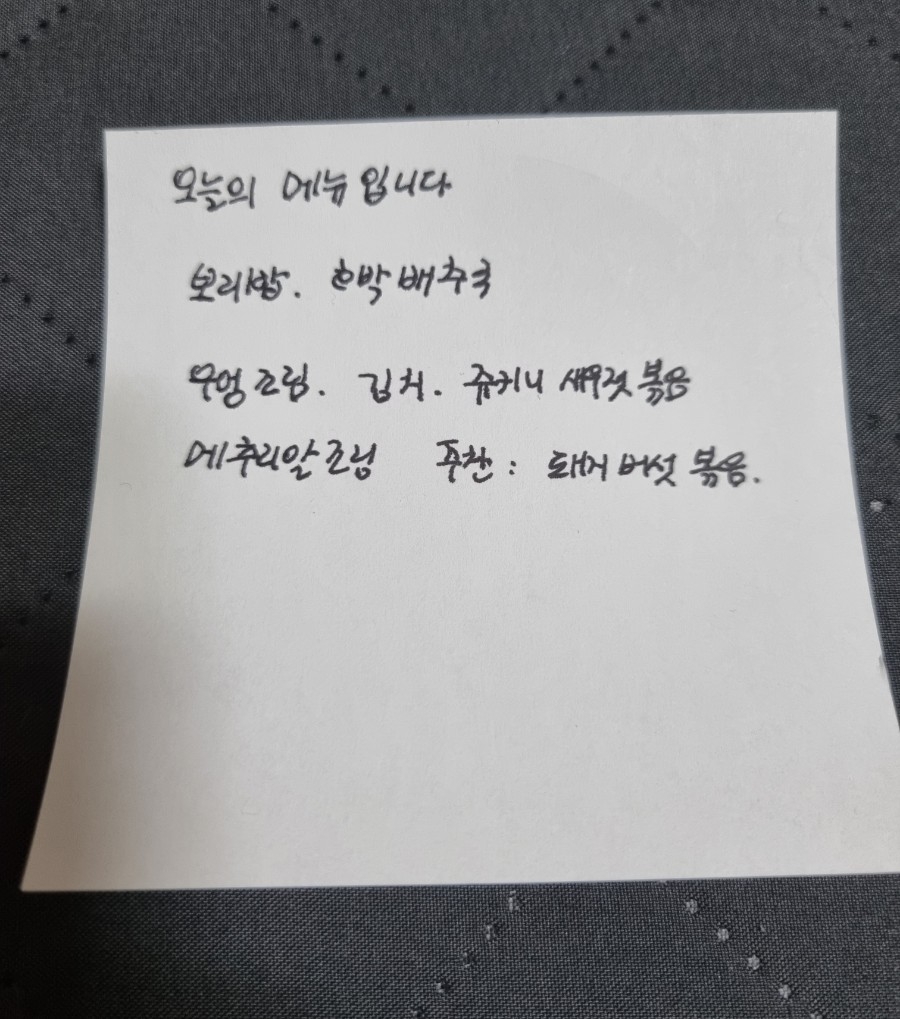 오늘의 메뉴입니다
보리밥. 호박배추국
우엉조림. 김치. 쥬키니 새우젓 볶음
메추리알조림 주찬 : 돼지 버섯 볶음.